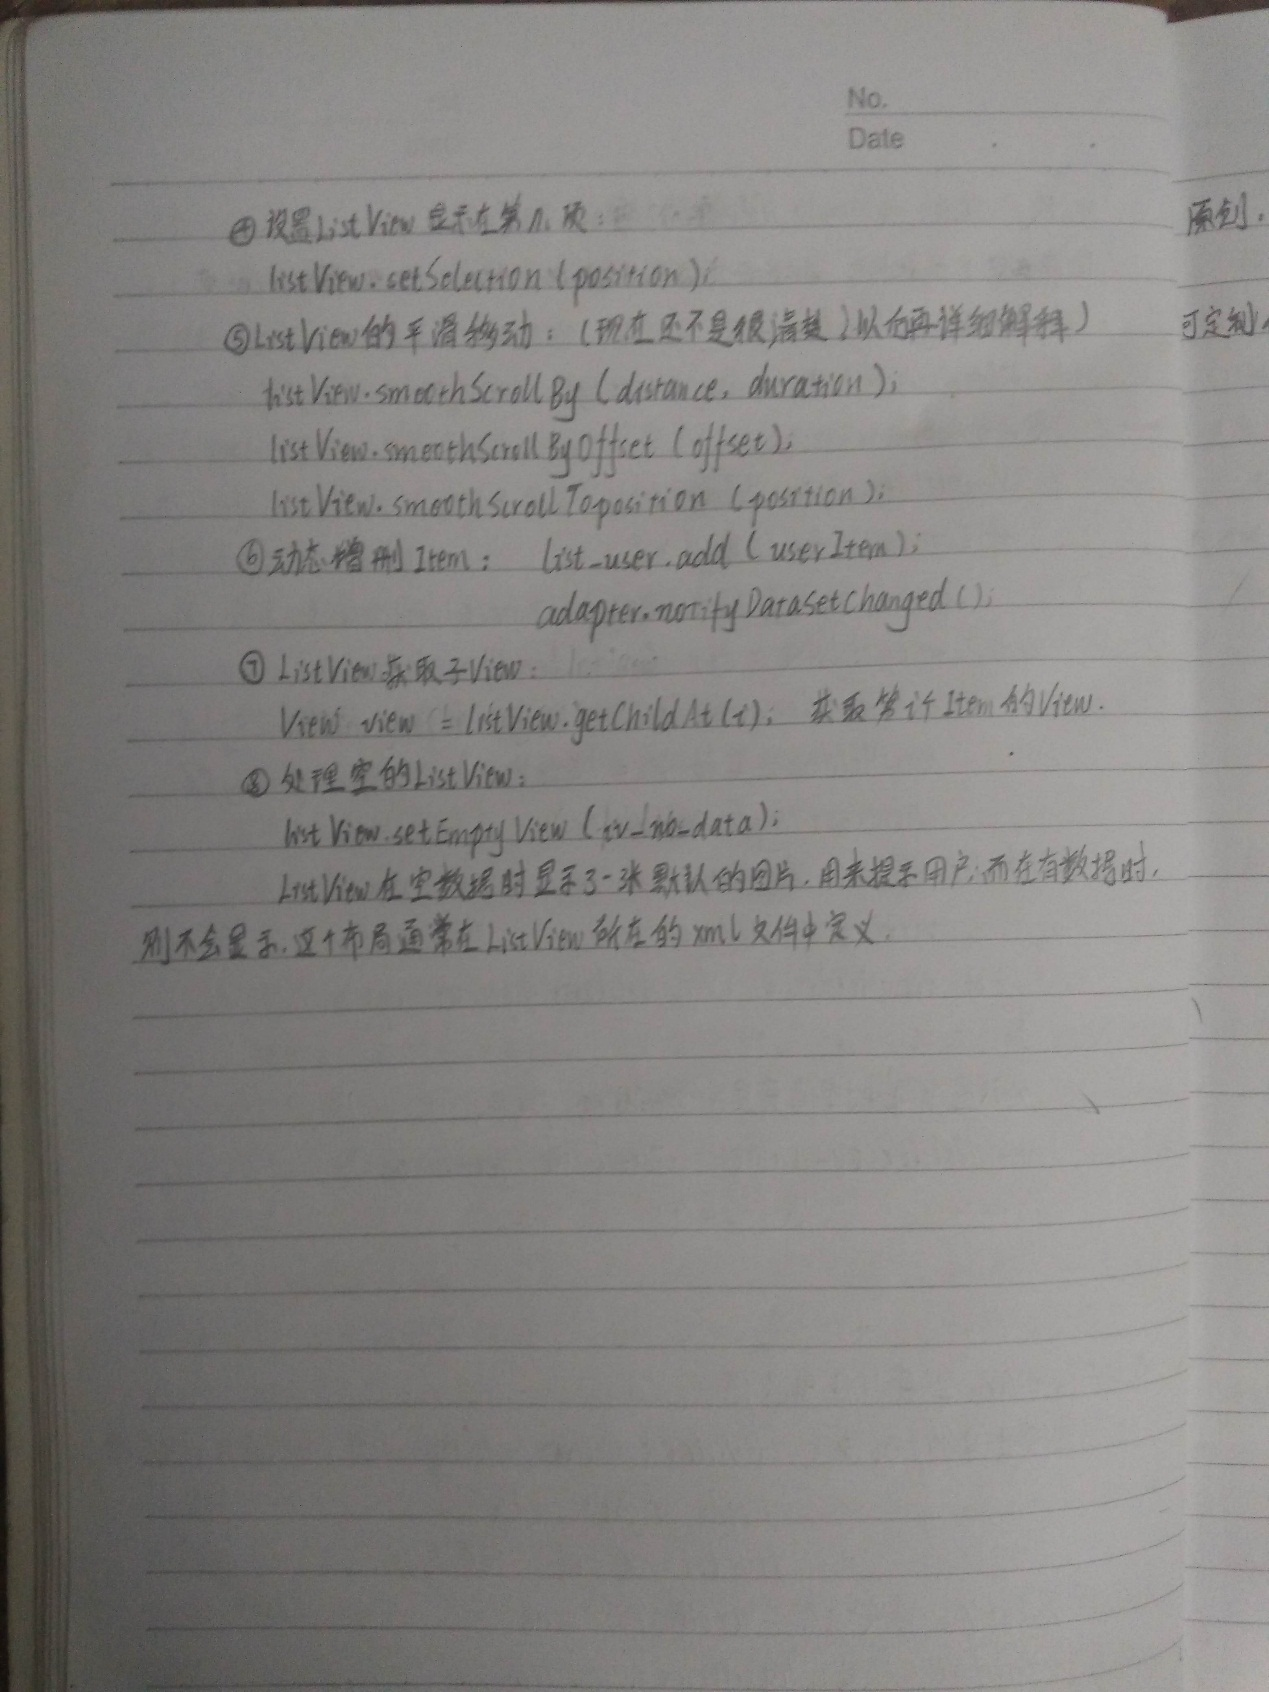 No.
Date
④设置ListView显示在第n项:
listView.setSelection(position);
⑤ListView的平滑移动:(现在还不是很清楚)以后再详细解释)
listView.smoothScrollBy(distance, duration);
listView.smoothScrollByOffset(offset);
listView.smoothScrollToposition(position);
⑥动态增删Item: list_user.add(userItem);
adapter.notifyDataSetChanged();
⑦ListView获取子View:
View view = listView.getChildAt(i); 获取第i个Item的View.
⑧处理空的ListView:
listView.setEmptyView(tv_no_data);
ListView在空数据时显示了一张默认的图片,用来提示用户;而在有数据时,
则不会显示.这个布局通常在ListView所在的xml文件中定义.
原创.
可定制